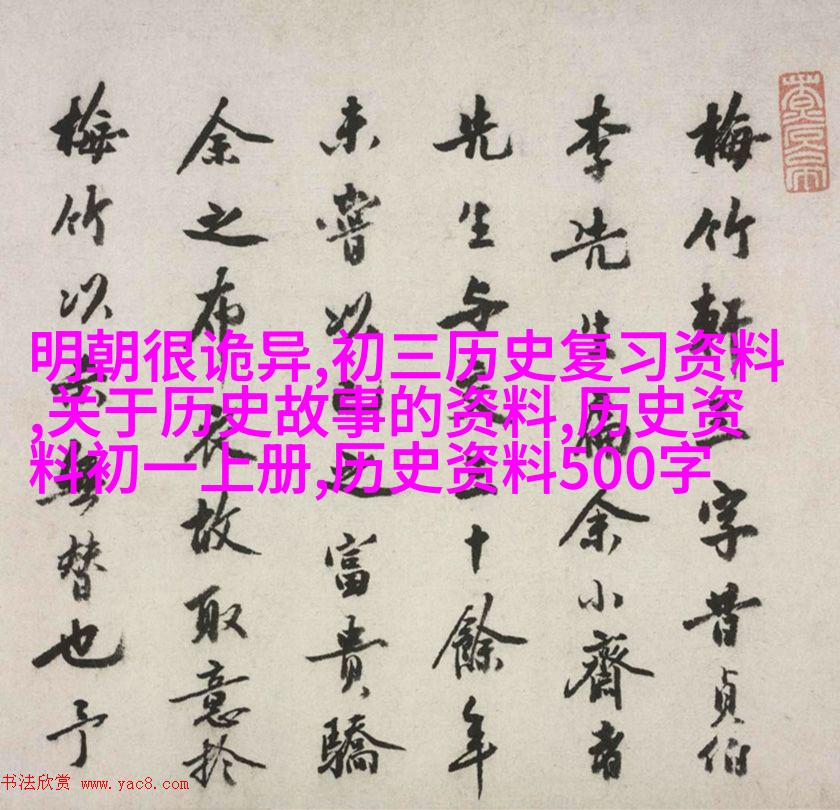 梅竹軒三字昔貞伯
李先生扁余小齋者
先生与交三十餘年
未嘗以己之富貴驕
余之布衣故取意於
梅竹以無替也予
明朝很诡异,初三历史复习资料
,关于历史故事的资料,历史资
料初一上册,历史资料500字
书法欣赏 www.yac8.com